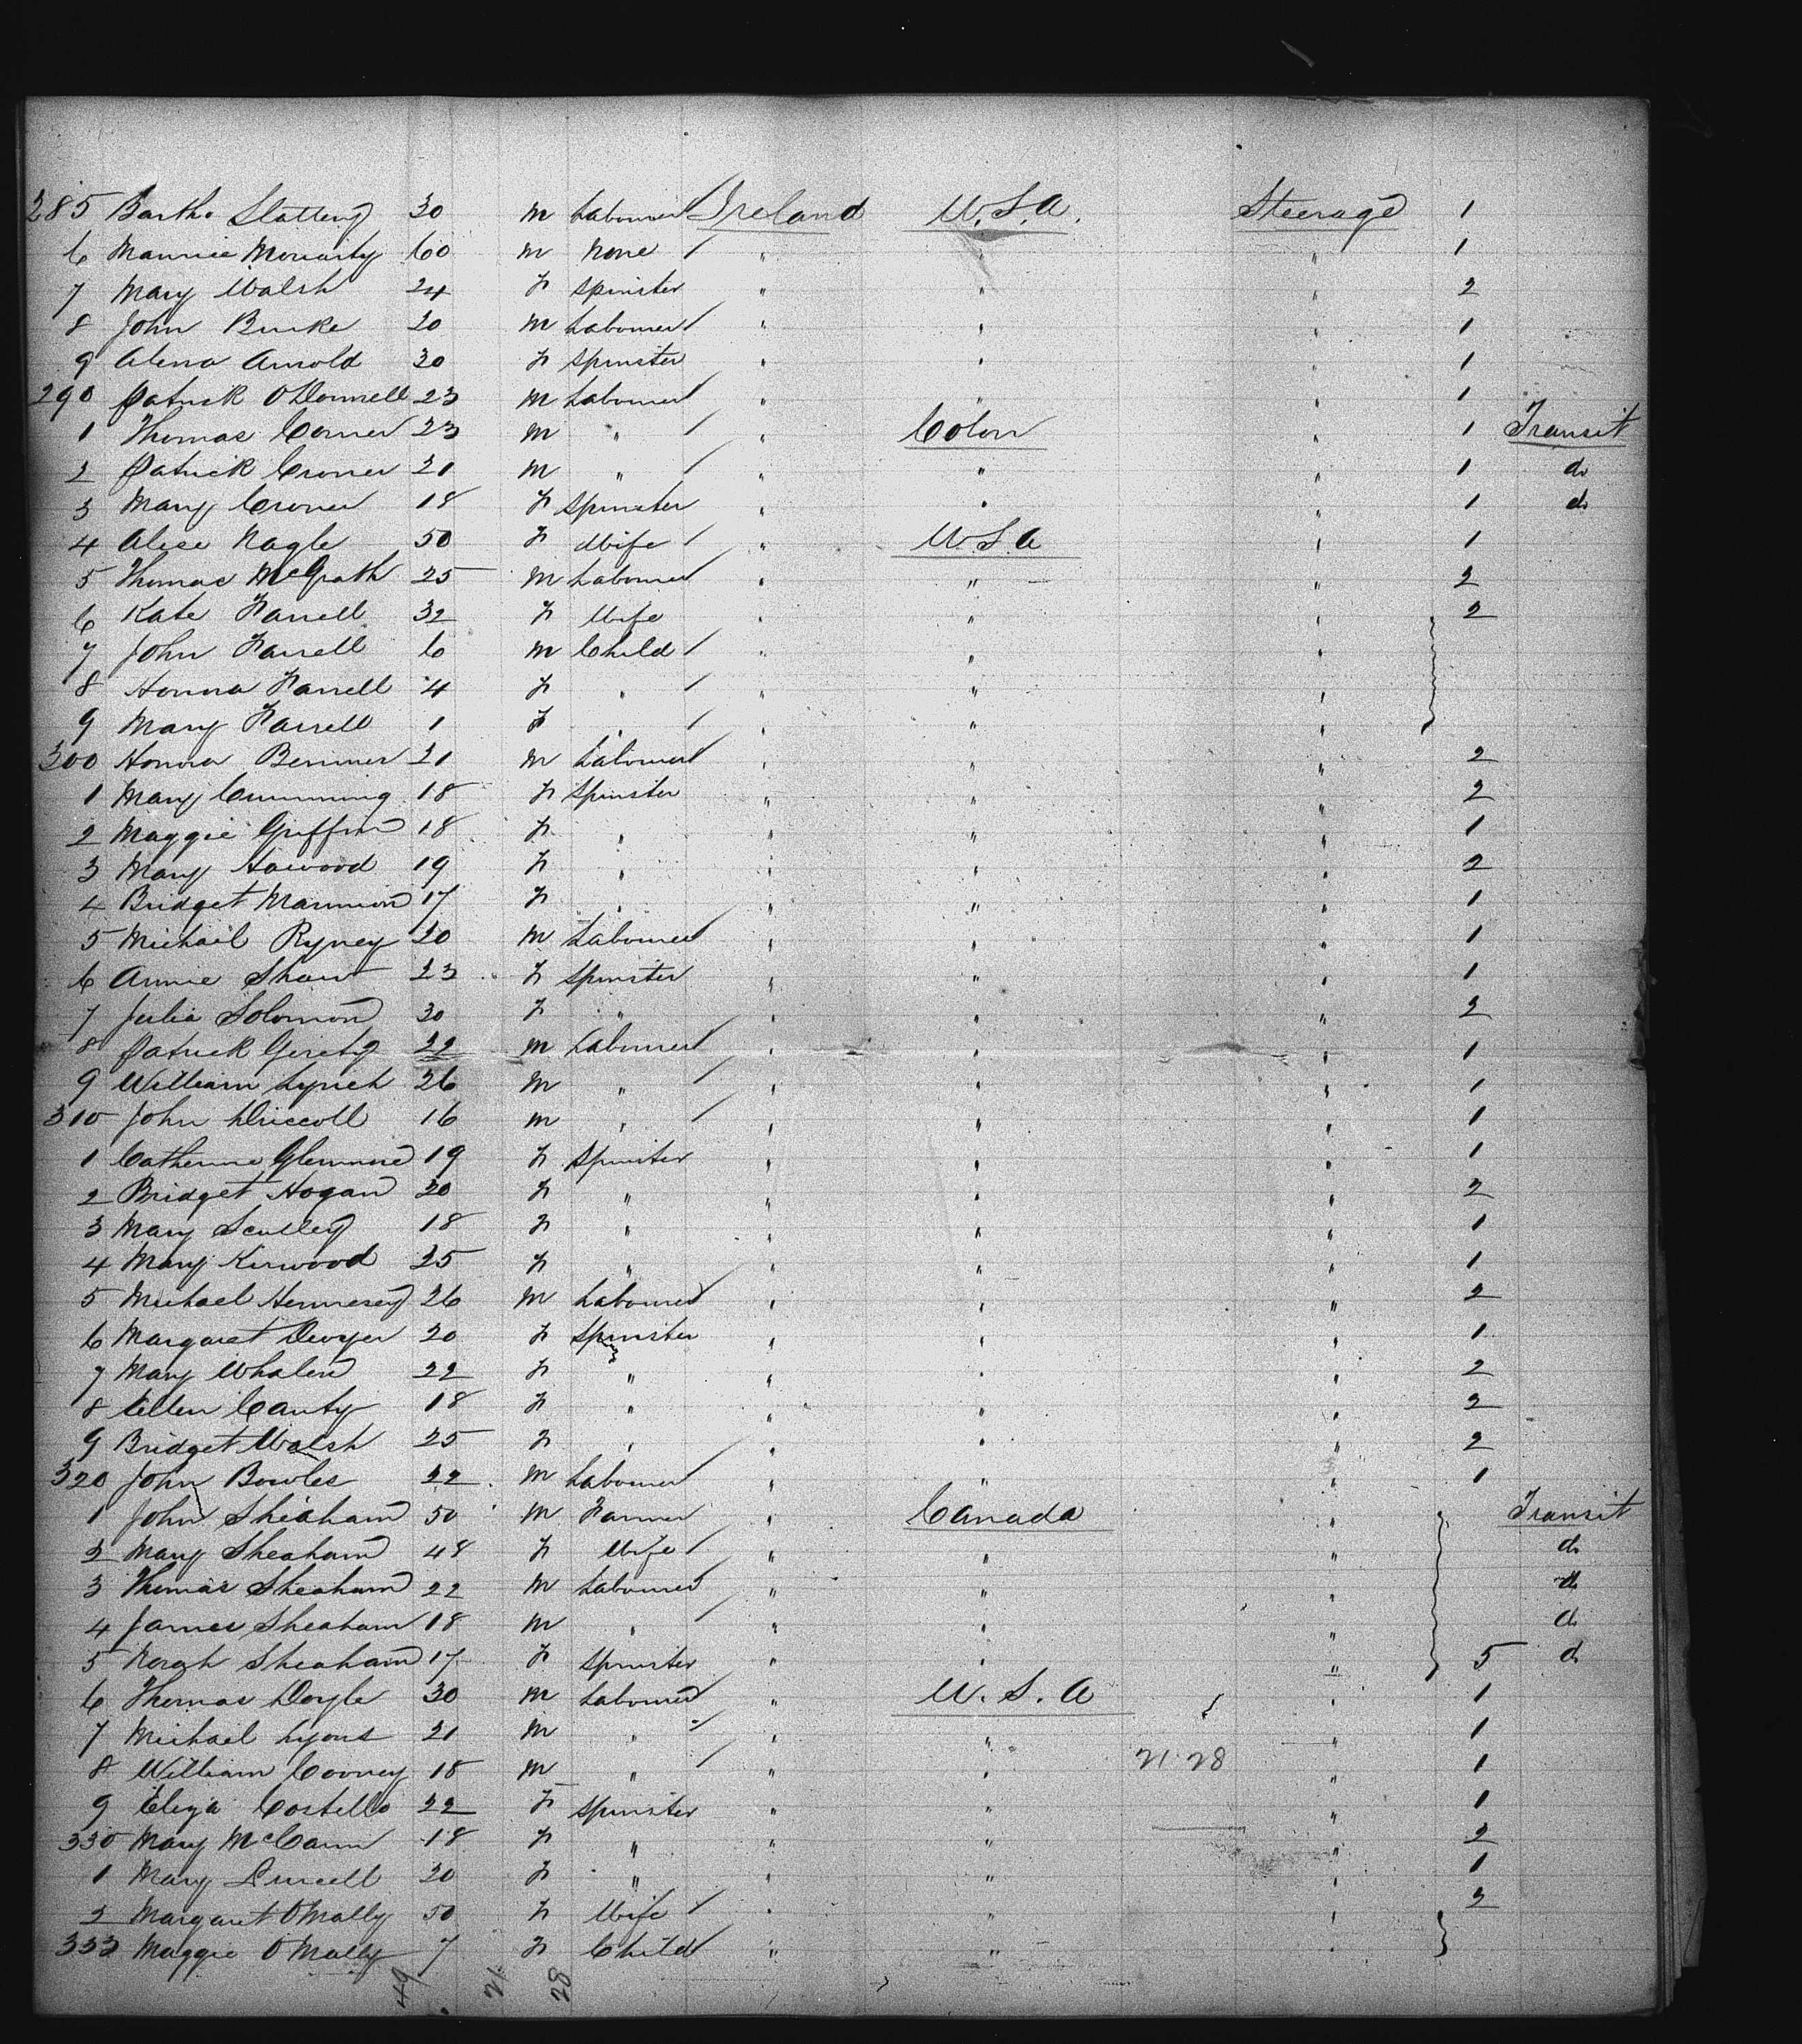 285 Barth. Slattery 30 m Labourer Ireland U.S.A. Steerage 1
6 Maurice Moriarty 60 m None / " " " 1
7 Mary Walsh 24 F Spinster " " " 2
8 John Burke 20 m Labourer / " " " 1
9 Arnold 30 F Spinster " " " 1
290 Patrick O'Donnell 23 m Labourer / " " " 1
1 Thomas 23 m " / " Colon " 1 Transit
2 Patrick Croner 21 m " / " " " 1 do
3 Mary Croner 18 F Spinster " " " 1 do
4 Alice Nagle 50 F Wife / " U.S.A " 1
5 Thomas McGrath 25 m Labourer / " " " 2
6 Kate Farrell 32 F Wife " " " 2
7 John Farrell 6 m Child / " " "
8 Honora Farrell 4 F " / " " "
9 Mary Farrell 1 F " / " " "
300 Honora 21 m Labourer / " " " 2
1 Mary Cumming 18 F Spinster " " " 2
2 Maggie Griffin 18 F " " " " 1
3 Mary 19 F " " " " 2
4 Bridget Mannion 17 F " " " " 1
5 Michail Ryney 20 m Labourer / " " " 1
6 Annie Shaw 23 F Spinster " " " 1
7 Julia Solomon 30 F " " " " 2
8 Patrick 22 m Labourer / " " " 1
9 William Lynch 26 m " / " " " 1
310 John Driscoll 16 m " / " " " 1
1 Catherine 19 F Spinster " " " 1
2 Bridget Hogan 20 F " " " " 2
3 Mary Sculley 18 F " " " " 1
4 Mary Kirwood 25 F " " " " 1
5 Michael Hennesey 26 m Labourer / " " " 2
6 Margaret Dwyer 20 F Spinster " " " 1
7 Mary Whalen 22 F " " " " 2
8 Ellen Canty 18 F " " " " 2
9 Bridget Walsh 25 F " " " " 2
320 John Bowles 22 m Labourer / " " " 1
1 John Sheaham 50 m Farmer " Canada " Transit
2 Mary Sheaham 48 F Wife / " " " do
3 Thomas Sheaham 22 m Labourer / " " " do
4 James Sheaham 18 m " / " " " do
5 Norah Sheaham 17 F Spinster " " " 5 do
6 Thomas Doyle 30 m Labourer / " U.S.A " 1
7 Michael Lyons 21 m " / " " " 1
8 William Cooney 18 m " / " " 21 28 " 1
9 Eliza Costello 22 F Spinster " " " 1
330 Mary McCann 18 F " " " " 2
1 Mary Purcell 20 F " " " " 1
2 Margaret O'Mally 50 F Wife / " " " 2
333 Maggie O'Mally 7 F Child / " " "
49 21 28